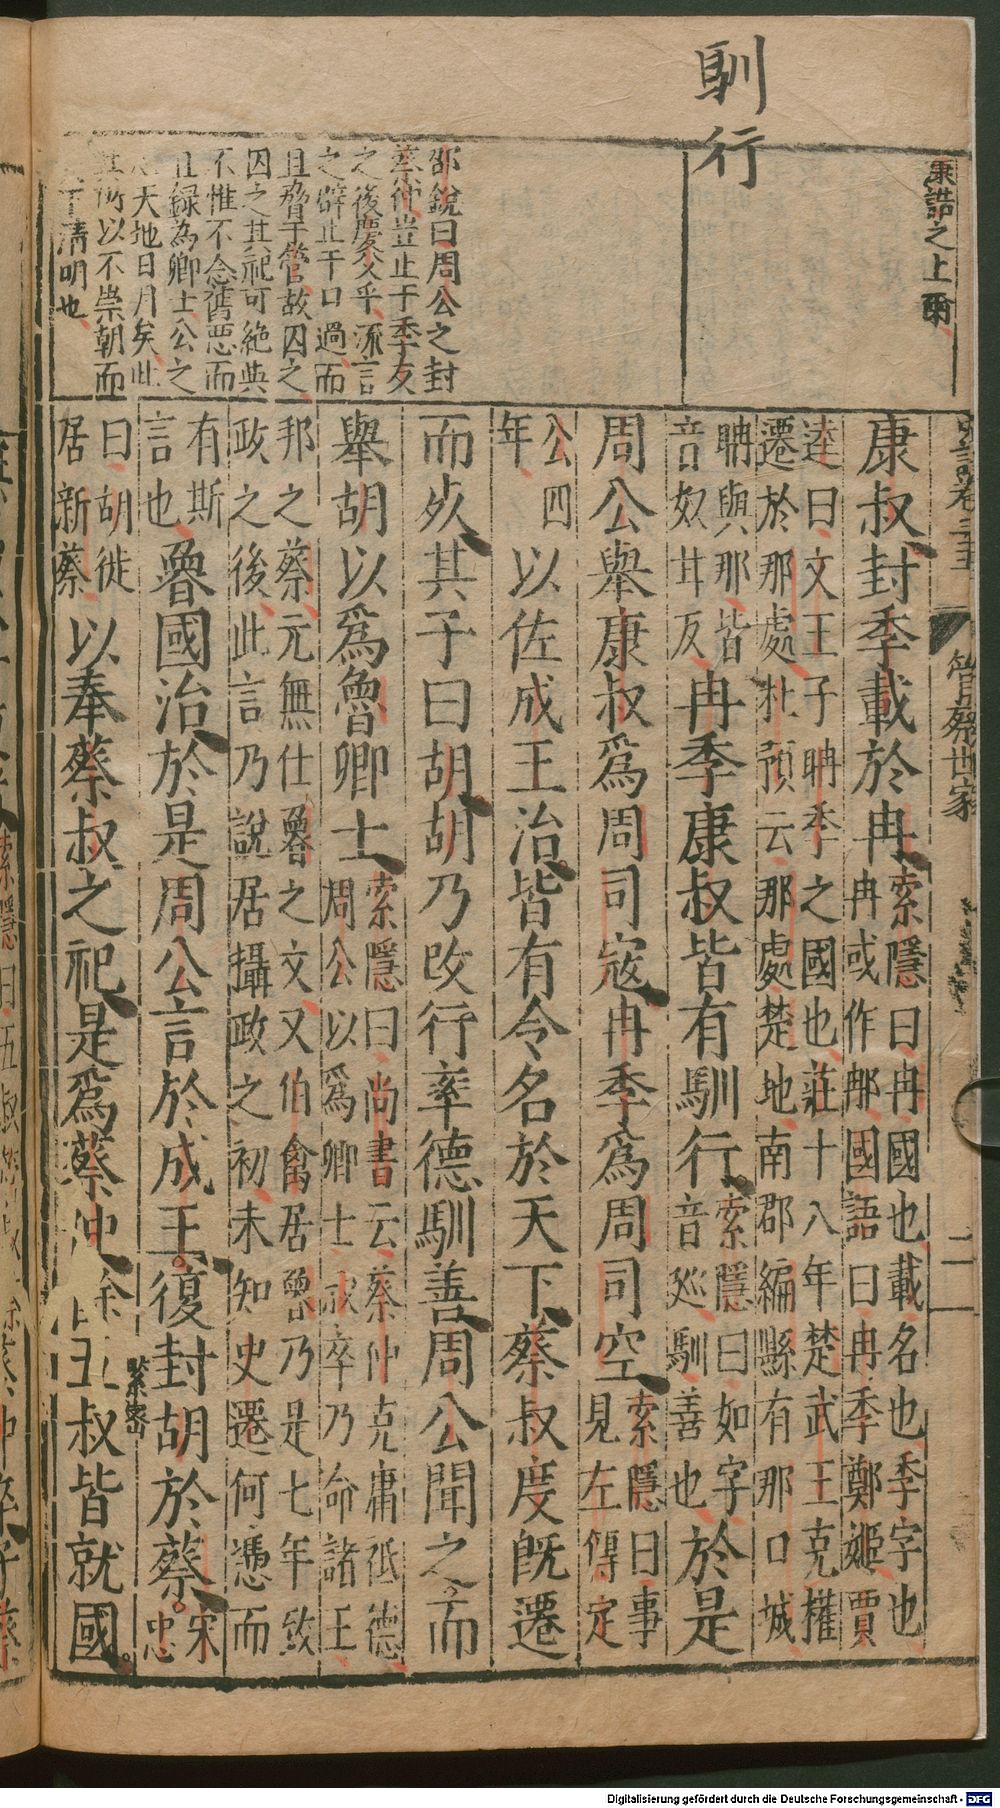 馴行
康誥之上
邵銳曰周公之封
蔡仲豈止于季友
之後慶父乎流言
之辟止干口過而
且脅于管故囚之
囚之其祀可絶與
不惟不念舊惡而
且録為卿士公之
天地日月矣此
所以不崇朝而
清明也
管蔡世家
二
康叔封季載於冉索隱曰冉國也載名也季字也
冉或作𨙻國語曰冉季鄭姬賈
逵曰文王子聃季之國也莊十八年楚武王克權
遷於那處杜預云那處楚地南郡編縣有那口城
聃與那皆
音奴甘反冉季康叔皆有馴行索隱曰如字
音巡馴善也於是
周公舉康叔爲周司寇冉季爲周司空索隱曰事
見左傳定
公四
年以佐成王治皆有令名於天下蔡叔度既遷
而死其子曰胡胡乃改行率德馴善周公聞之而
舉胡以爲魯卿士索隱曰尚書云蔡仲克庸祗德
周公以爲卿士叔卒乃命諸王
邦之蔡元無仕魯之文又伯禽居魯乃是七年致
政之後此言乃說居攝政之初未知史遷何憑而
有斯
言也魯國治於是周公言於成王復封胡於蔡宋
忠
曰胡徙
居新蔡以奉蔡叔之祀是爲蔡仲餘五叔皆就國
緊密
Digitalisierung gefördert durch die Deutsche Forschungsgemeinschaft - DFG